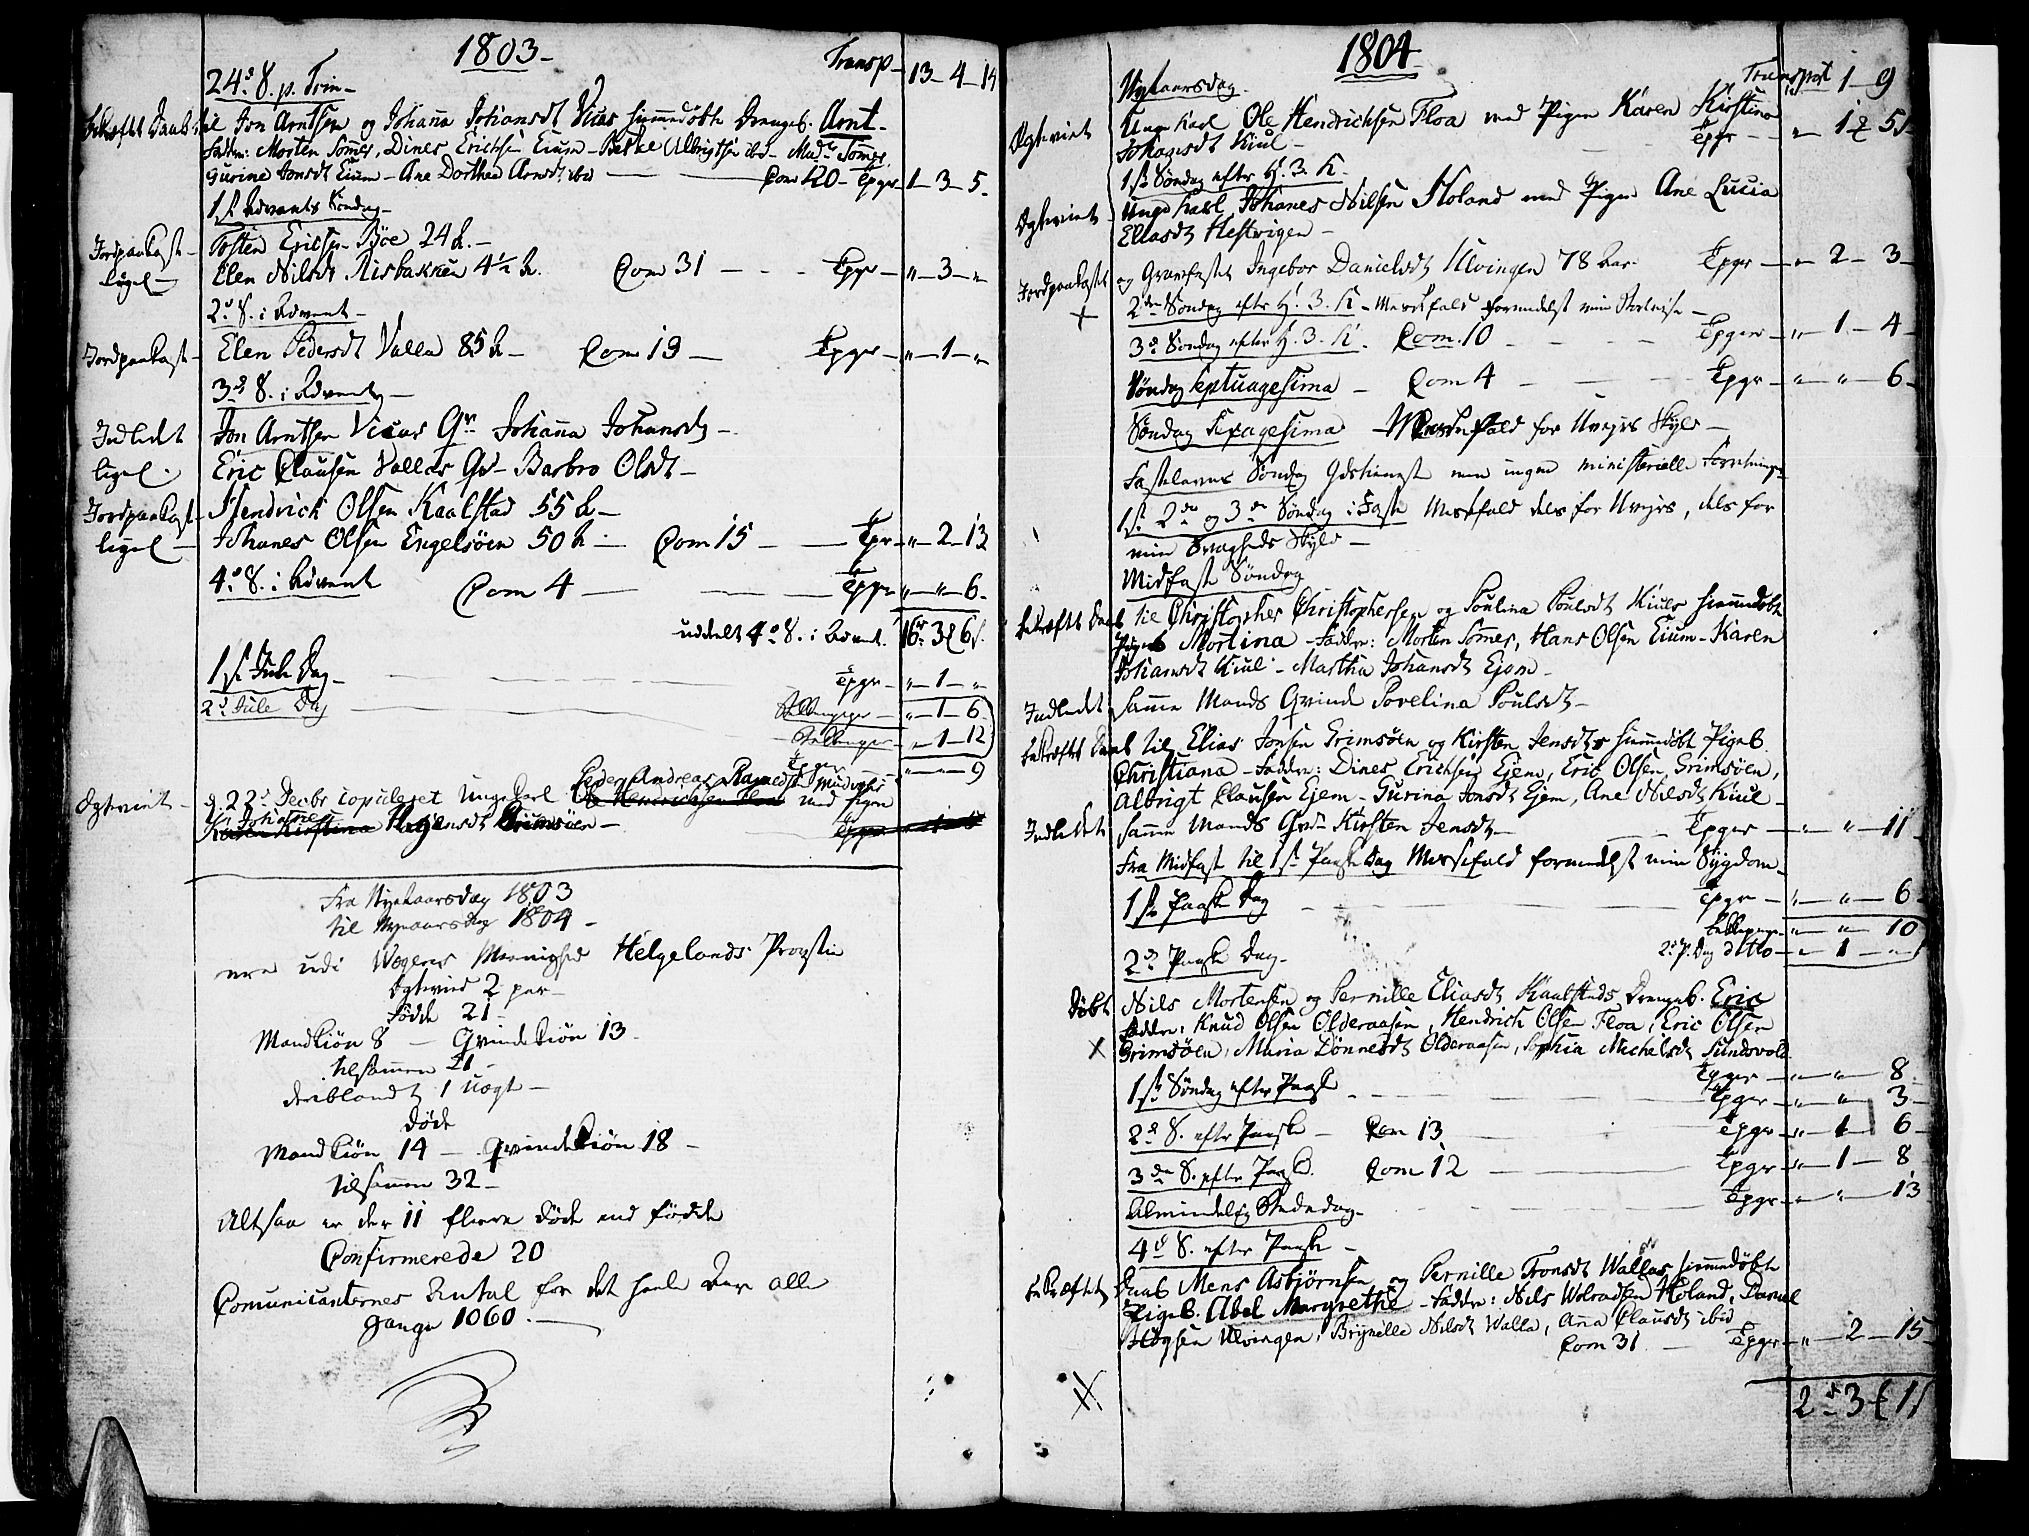 1803 -
Transp - 13 - 4 - 14
24. S. p. Trin -
bekræftet Daab til Jon Arntsen og Johana Johansdt Vicas hiemmedøbte Drengeb. Arnt.
Faddere: Morten Sømes, Dines Erichsen Eium - Albrigtsen ibd - Mad. Sømes
Gurine Jonsdt Eium - Ane Dorthea Arnsdt ibd - Com 120 - Tpgr 1 - 3 - 5.
1st Advents Søndag -
Jordpaakast - Tosten Ericsen Bøe 24 A. -
ligel - Elen Nilsdt Risbakken 4½ A. Com 31 - - - Tpgr - " - 3 - "
2d S. i Advent -
Jordpaakast - Elen Pedersdt Valla 85 A - Com 19 - Tpgr - " - 1 - "
3d S. i Advent -
Indledet Jon Arntsen Vicas Qv Johana Johansdt -
ligel. Eric Clausen Vallas Qv - Barbro Olsdt -
Jordpaakast - Hendrich Olsen Kaalstad 55 A -
ligel - Johanes Olsen Engelsøen 50 A - Com 15 - Tpr - " - 2 - 13
4d S. i Advent Com 4 - Tpgr " - " - 6 -
uddelt 4d S. i Advent. 16 3 6 s.
1st Jule Dag - Tpgr - " - 1 - "
2d Jule Dag - " - 1 - 6
- " - 1 - 12
Tpgr " - " - 9
Peder Andreas
Ægteviet - d. 22d Decbr copuleret Unge Karl Ole Hendrichsen Floa med Pigen
Johane
Karen Kirstina Grimsøen - Tpgr
Fra Nyeaarsdag 1803
til Nyeaarsdag 1804 -
ere udi Wegens Menighed Helgelands Provstie
Ægtevied 2 par -
Fødde 21 -
Mandkiøn 8 - Qvindekiøn 13 -
tilsamen 21 -
deriblandt 1 uægt -
Døde
Mandkiøn 14 - Qvindekiøn 18 -
tilsamen 32 -
Altsaa er der 11 flere døde end fødde
Confirmerede 20
Comunicanternes Antal for det heele Aar alle
gange 1060. -
1804
Nyeaarsdag - Transport 1 - 9
Ægteviet Unge Karl Ole Hendrichsen Floa med Pigen Karen Kirstina
Johansdt Kiul - Tpgr - - " - 1 5 s
1st Søndag efter H. 3. K.
Ægteviet - Unge Karl Johanes Nilsen Høland med Pigen Ane Lucia
Eliasdt Hestvigen -
Jordpaakastet og Gravfæstet Ingebor Danielsdt Ulvingen 78 Aar Tpgr - " - 2 - 3 -
2den Søndag efter H. 3. K - Messefald formedelst min
3d Søndag efter H. 3. K. Com. 10 - - - - Tpgr - " - 1 - 4 -
Søndag Septuagesima - Com 4 - - - Tpgr - " " - 6 -
Søndag Sexagesima - Messefald for Uvejrs Skyld -
Fastelavns Søndag Gdstienest men ingen ministerielle Forretninger
1st 2den og 3den Søndag i Faste Messefald dels for Uvejrs, dels for
min Svagheds Skyld -
Midfaste Søndag
bekræftet Daab til Christopher Christophersen og Poulina Poulsdt Kiuls hiemmedøbte
Pigeb. Mortina - Faddere: Morten Sømes, Hans Olsen Eium - Karen
Johansdt Kiul - Martha Johansdt Ejom -
Indledet Same Mands Qvinde Povelina Poulsdt -
bekræftet Daab til Elias Jonsen Grimsøen og Kirsten Jensdts hiemmedøbt Pigeb
Christiana - Faddere: Dines Erichsen Ejem, Eric Olsen Grimsøen,
Albrigt Clausen Ejem - Gurina Jonsdt Ejem, Ane Nilsdt Kiul -
Indledet Same Mands Qvd Kirsten Jensdt - Tpgr - " " - 11 -
Fra Midfaste til 1st Paaske Dag Messefald formedelst min Sygdom -
1st Paaske Dag - - - - Tpgr - " - " - 6 -
" " 10
2d Paaske Dag - 2d P. Dag ditto - " 1 - "
Døbt Nils Mortensen og Pernille Eliasdt Kaalstads Drengeb. Eric
Faddere: Knud Olsen Olderaasen, Hendrich Olsen Floa, Eric Olsen
Grimsøen, Maria Dønnesdt Olderaasen, Sophia Michelsdt Sundsvold
Tpgr - " - " 8
1st Søndag efter Paaske - - - Tpgr - " - " 3 -
2d S. efter Paaske - Com 13 - - Tpgr - " - 1 6 -
3de S. efter Paaske. Com 12 - - Tpgr - " - 1 - 8
Almindelig Bededag - - - - Tpgr - " " - 13
4d S. efter Paaske -
bekræftet Daab Mens Asbjørnsen og Pernille Tronsdt Wallas hiemmedøbte
Pigeb. Abel Margrethe - Faddere: Nils Wolradsen Høland, Daniel
Ulvingen, Brynille Nilsdt Walla, Ana Clausdt ibid
Com 31 - Tpgr - " - 2 - 15
2 d 3 11